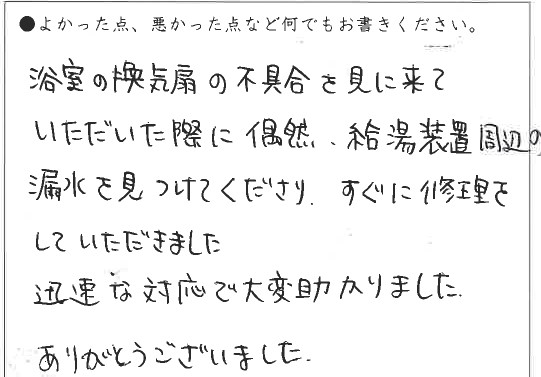 ●よかった点、悪かった点など何でもお書きください。
浴室の換気扇の不具合を見に来て
いただいた際に偶然、給湯装置周辺の
漏水を見つけてくださり、すぐに修理を
していただきました
迅速な対応で大変助かりました.
ありがとうございました.